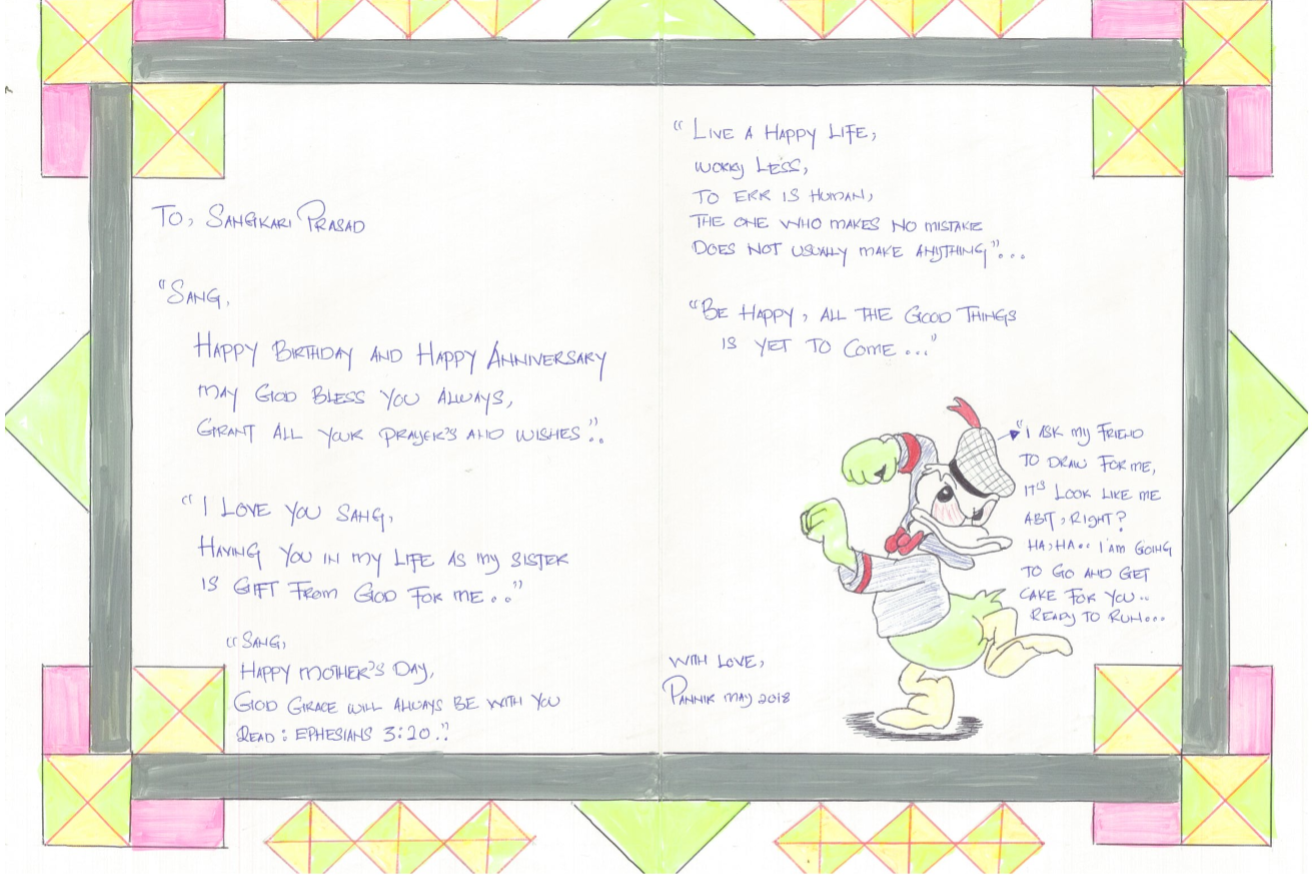 To, Sangikari Prasad
"Sang,
Happy Birthday and Happy Anniversary
may God bless you always,
Grant all your prayer's and wishes"..
"I love you Sang,
Having you in my life as my sister
is gift from God for me.."
"Sang,
Happy mother's Day,
God Grace will always be with you
Read: Ephesians 3:20."
"Live a Happy Life,
worry less,
To err is human,
The one who makes no mistake
does not usually make anything"...
"Be Happy, all the Good Things
is yet to come..."
"I ask my friend
to draw for me,
it's look like me
abit, right?
Ha, Ha.. I am going
to go and get
cake for you..
Ready to run...
with love,
Pannir may 2018